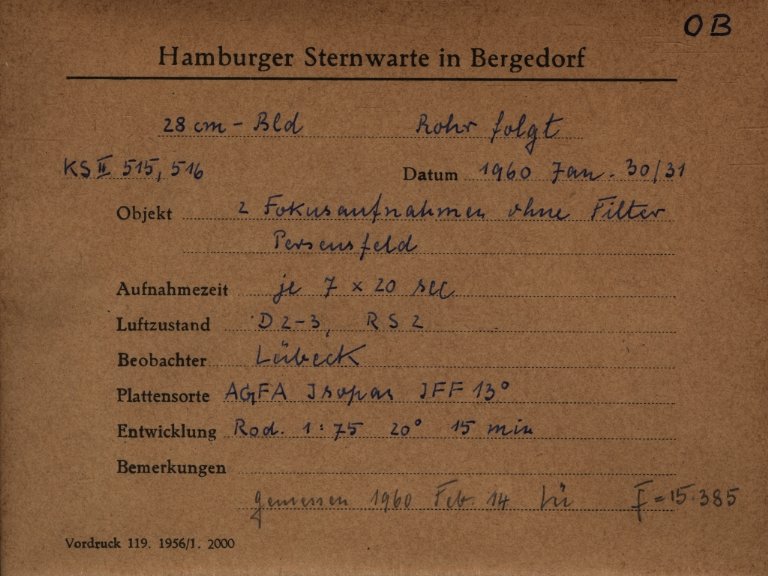 OB
Hamburger Sternwarte in Bergedorf
28 cm - Bld Rohr folgt
KS II 515, 516 Datum 1960 Jan. 30/31
Objekt 2 Fokusaufnahmen ohne Filter
Perseusfeld
Aufnahmezeit je 7 x 20 sec
Luftzustand D 2-3, RS 2
Beobachter Lübeck
Plattensorte AGFA Isopan IFF 13°
Entwicklung Rod. 1:75 20° 15 min
Bemerkungen
gemessen 1960 Feb. 14 Lü F = 15.385
Vordruck 119. 1956/1. 2000